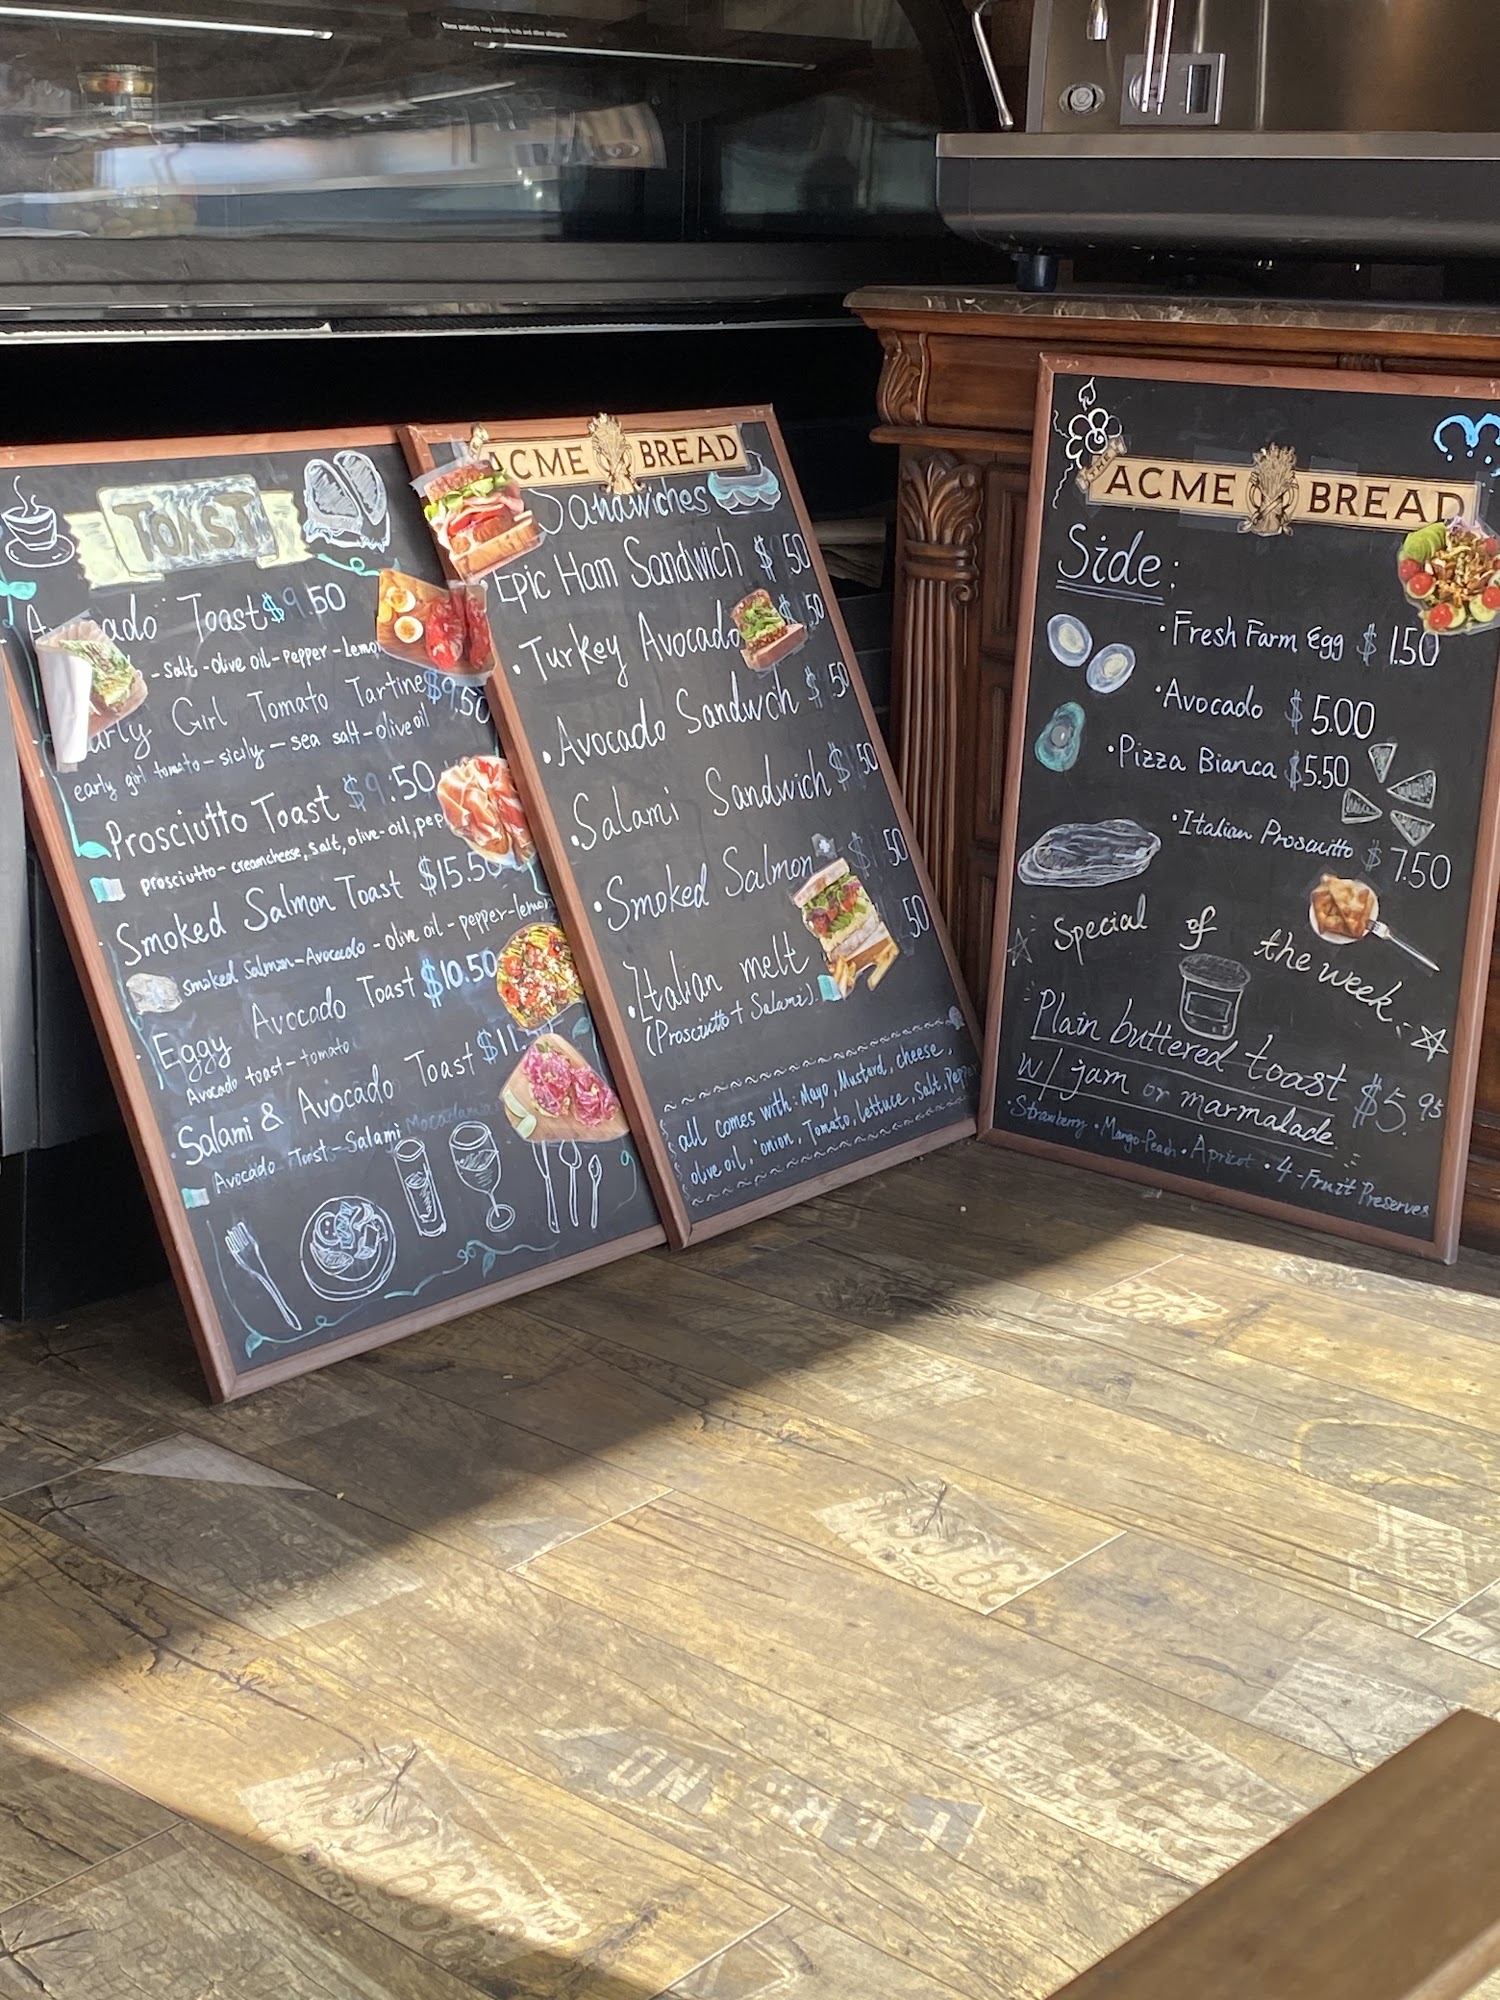 These products may contain nuts and other allergens.
TOAST
Toast $9.50
- salt - olive oil - pepper - Lemon
Girl Tomato Tartine $9.50
early girl tomato - sicily - sea salt - olive oil
Prosciutto Toast $9.50
prosciutto - creamcheese, salt, olive-oil, pep
Smoked Salmon Toast $15.50
smoked Salmon - Avocado - olive oil - pepper - lemon
Eggy Avocado Toast $10.50
Avocado toast - tomato
Salami & Avocado Toast $11.
Avocado Toast - Salami
ACME BREAD
Sandwiches
Epic Ham Sandwich $ 50
• Turkey Avocado $ .50
• Avocado Sandwch $ .50
• Salami Sandwich $ .50
• Smoked Salmon 50
• Italian melt 50
(Prosciutto + Salami).
all comes with: Mayo, Mustard, cheese,
olive oil, onion, Tomato, lettuce, Salt, Pepper
THE
ACME BREAD
Side:
• Fresh Farm Egg $ 1.50
• Avocado $ 5.00
• Pizza Bianca $5.50
• Italian Prosciutto $ 7.50
Special of the week.
Plain buttered toast
w/ jam or marmalade $5.95
Strawberry • Mango-Peach • Apricot • 4-Fruit Preserves